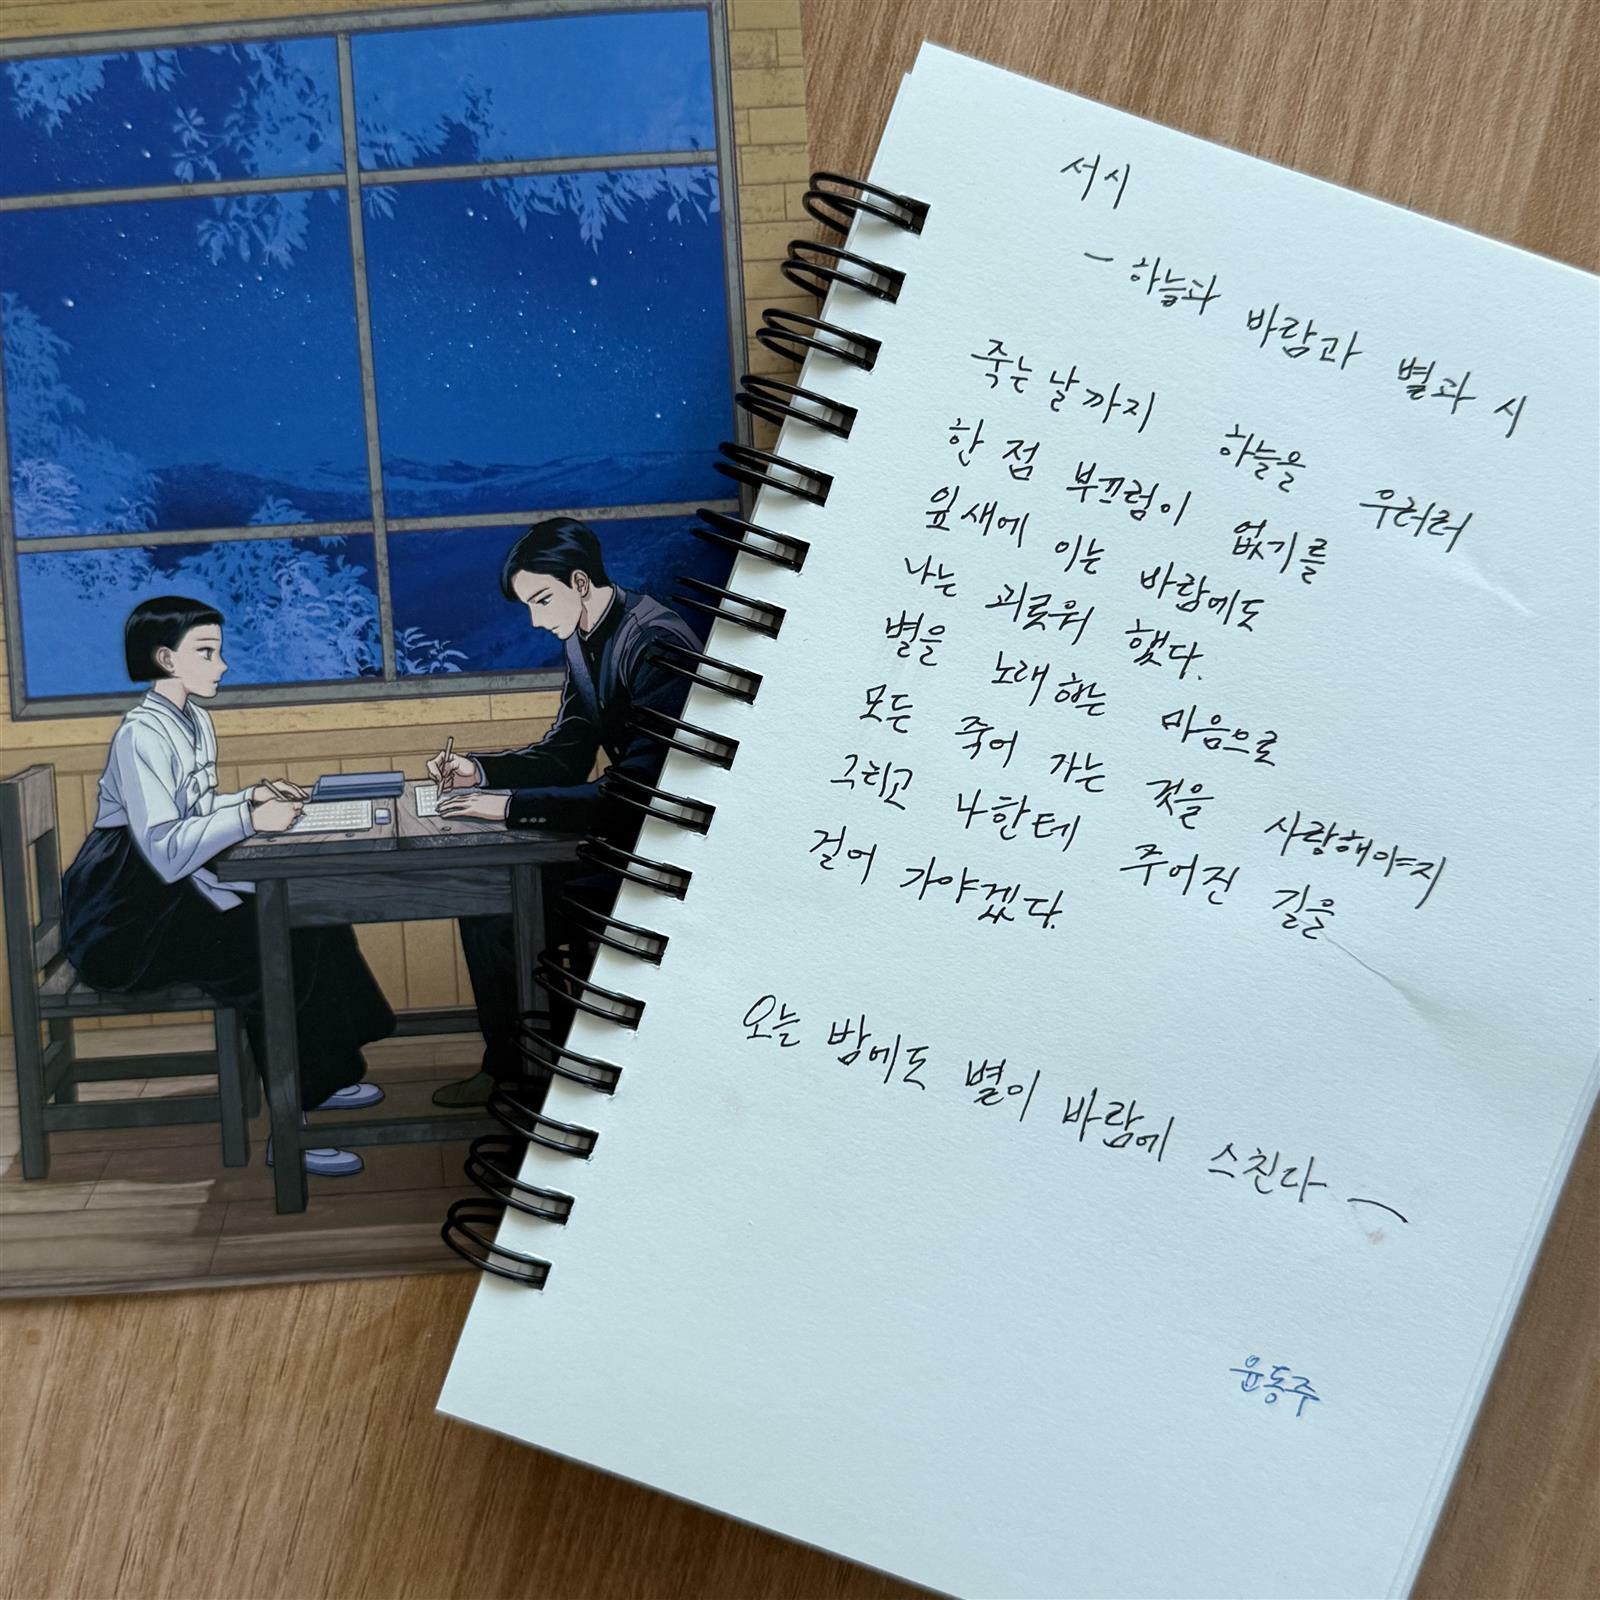 서시
- 하늘과 바람과 별과 시
죽는 날까지 하늘을 우러러
한 점 부끄럼이 없기를
잎새에 이는 바람에도
나는 괴로워 했다.
별을 노래하는 마음으로
모든 죽어 가는 것을 사랑해야지
그리고 나한테 주어진 길을
걸어 가야겠다.
오늘 밤에도 별이 바람에 스친다 ―
윤동주